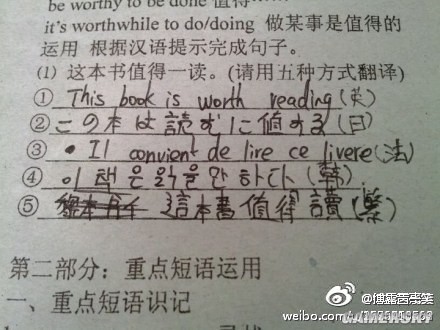 be worthy to be done 值得
it's worthwhile to do/doing 做某事是值得的
运用 根据汉语提示完成句子。
(1) 这本书值得一读。(请用五种方式翻译)
① This book is worth reading(英)
② この本は読むに値する(日)
③ • Il convient de lire ce livere(法)
④ 이 책은 읽을만 하다(韩)
⑤ 這本書值得讀(繁)
第二部分：重点短语运用
一、重点短语识记
weibo.com/
GAMERSKY